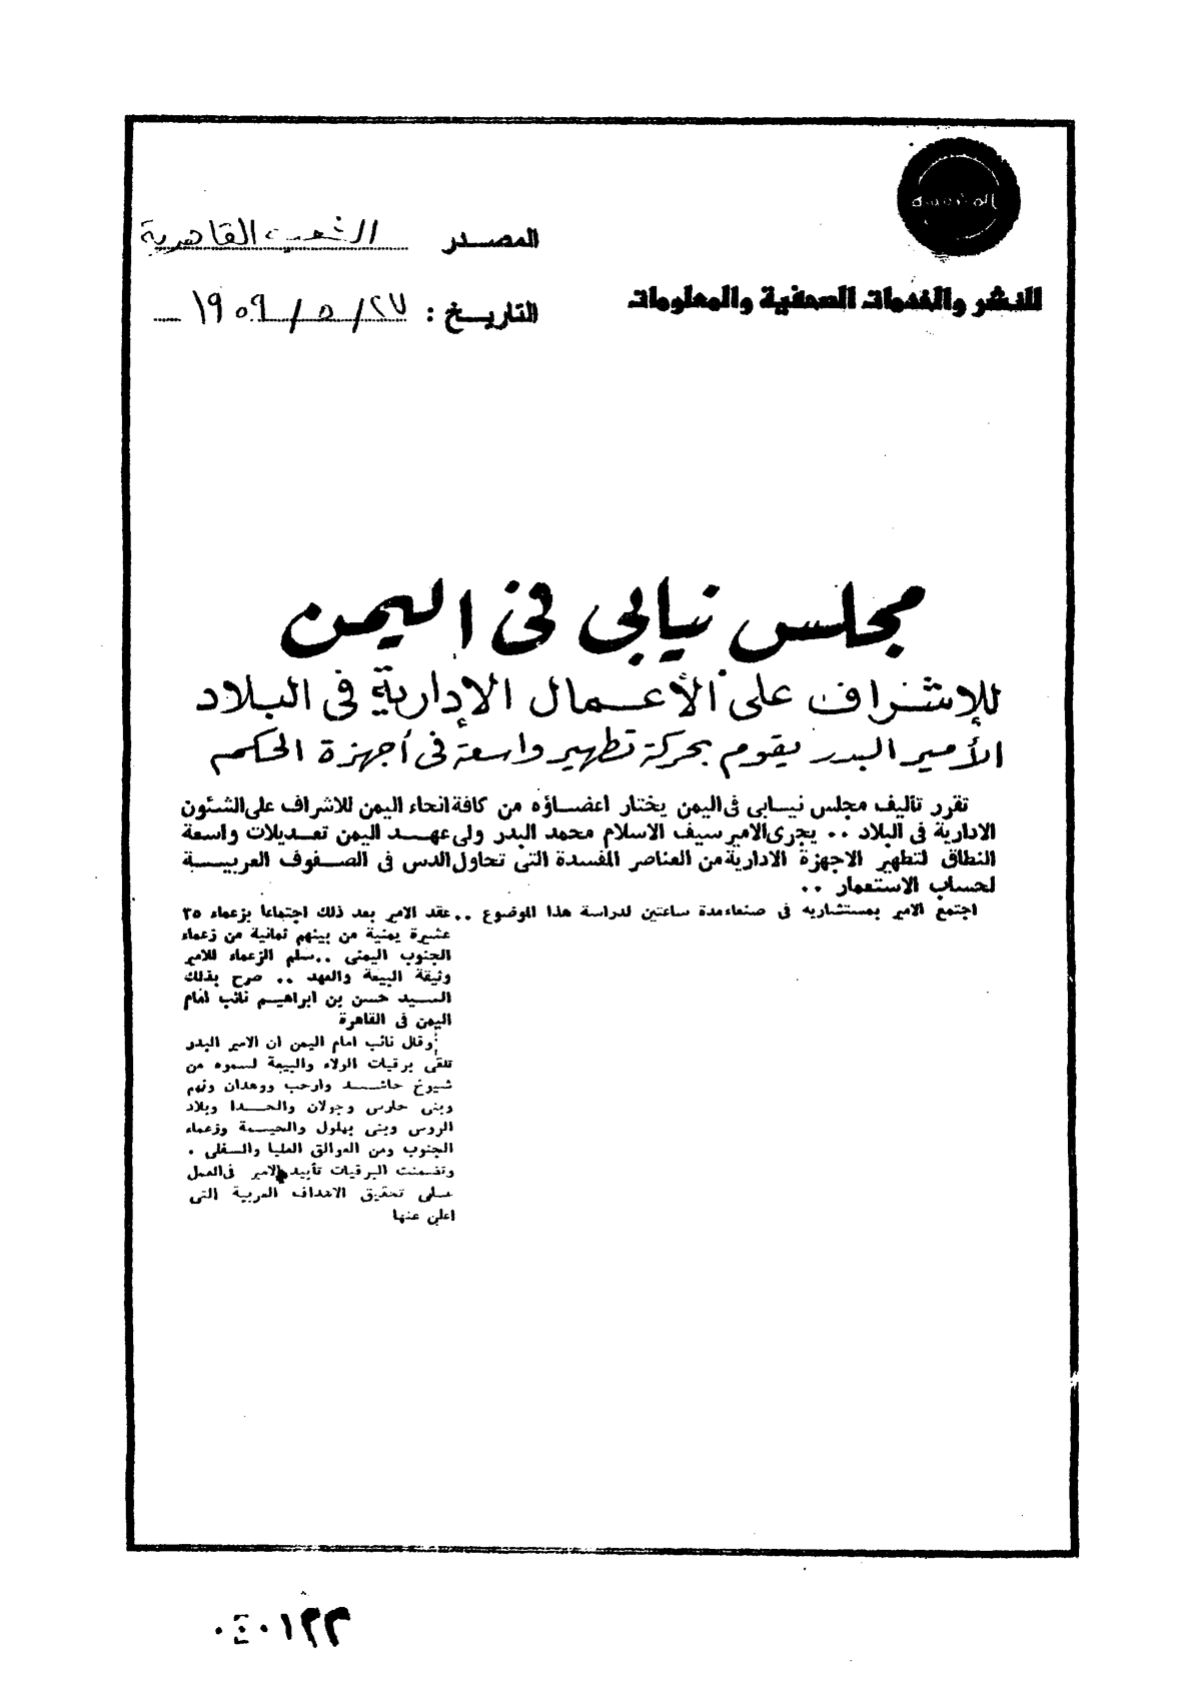 للنشر والخدمات الصحفية والمعلومات
المصدر الشعب القاهرية
التاريخ : ٢٧/ ٥/ ١٩٥٩
مجلس نيابى فى اليمن
للإشراف على الأعمال الإدارية فى البلاد
الأمير البدر يقوم بحركة تطهير واسعة فى أجهزة الحكم
تقرر تأليف مجلس نيابى فى اليمن يختار اعضاؤه من كافة انحاء اليمن للاشراف على الشئون
الادارية فى البلاد .. يجرى الامير سيف الاسلام محمد البدر ولى عهد اليمن تعديلات واسعة
النطاق لتطهير الاجهزة الادارية من العناصر المفسدة التى تحاول الدس فى الصفوف العربية
لحساب الاستعمار ..
اجتمع الامير بمستشاريه فى صنعاء مدة ساعتين لدراسة هذا الموضوع .. عقد الامير بعد ذلك اجتماعا بزعماء ٢٥
عشيرة يمنية من بينهم ثمانية من زعماء
الجنوب اليمنى .. سلم الزعماء للامير
وثيقة البيعة والعهد .. صرح بذلك
السيد حسن بن ابراهيم نائب امام
اليمن فى القاهرة
وقال نائب امام اليمن ان الامير البدر
تلقى برقيات الولاء والبيعة لسموه من
شيوخ حاشد وارحب ووهدان ونهم
وبنى حارس وجولان والحدا وبلاد
الروس وبنى بهلول والحيمة وزعماء
الجنوب ومن العوالق العليا والسفلى .
وتضمنت البرقيات تأييد الامير فى العمل
على تحقيق الاهداف العربية التى
اعلن عنها
٠٤٠١٢٢